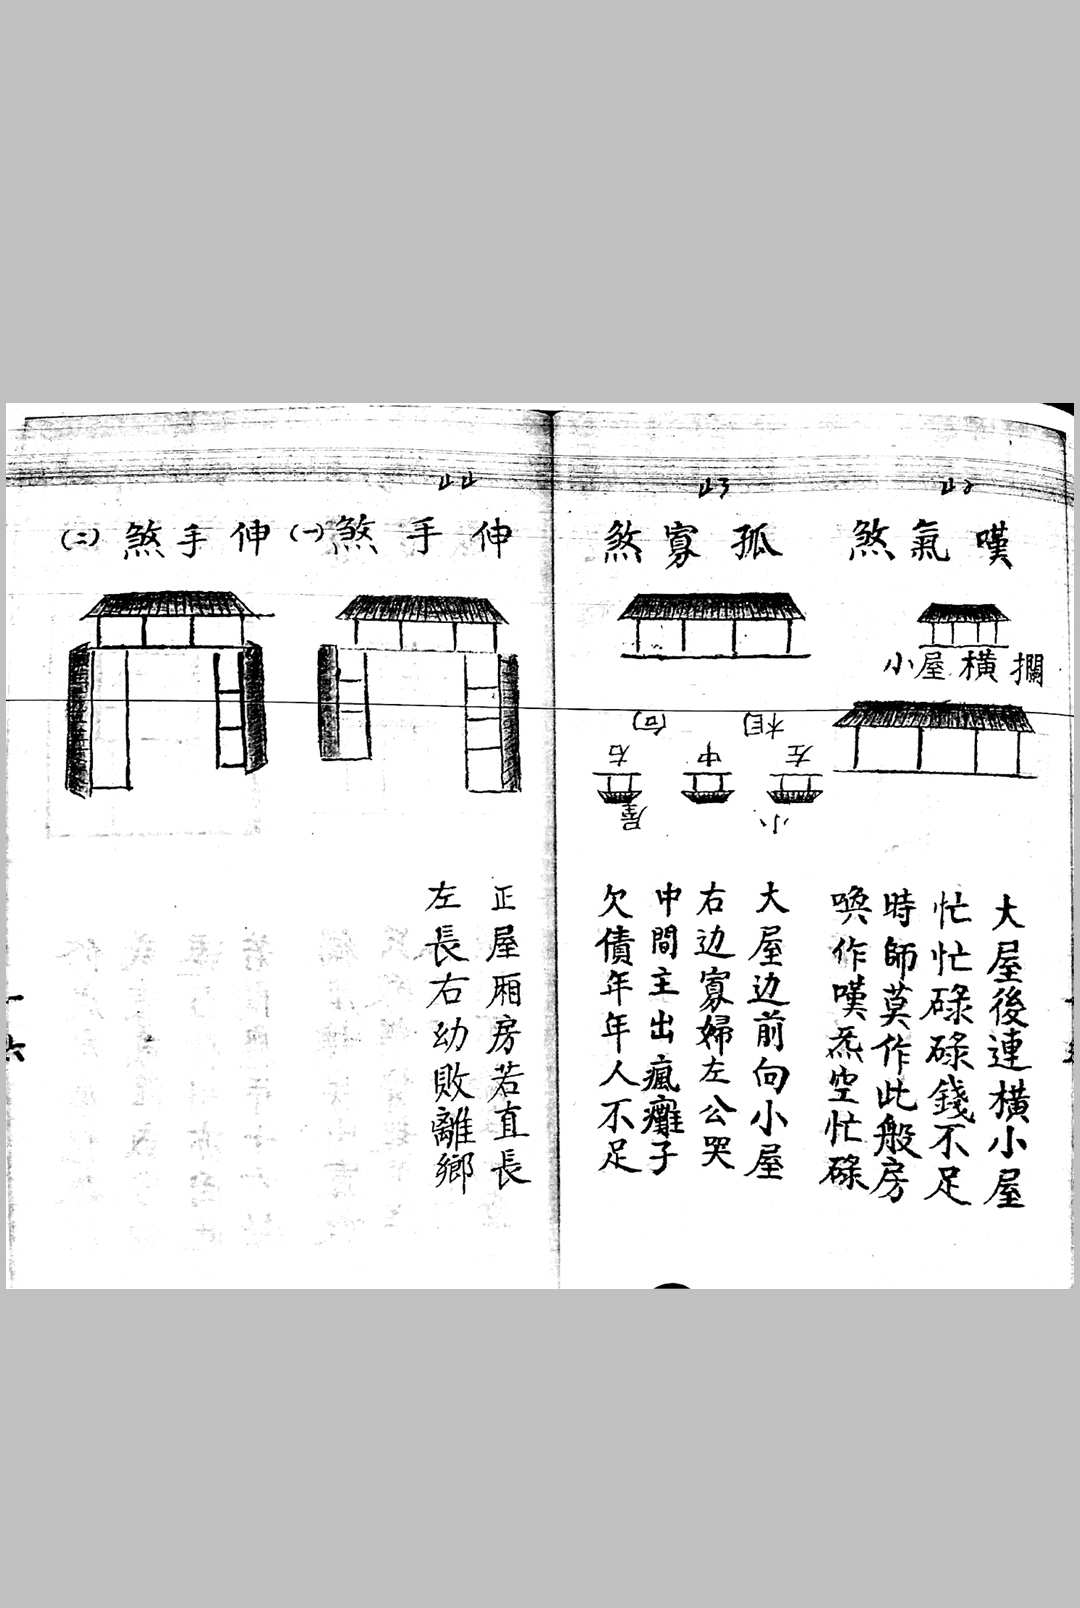 42
嘆氣煞
小屋橫攔
大屋後連橫小屋
忙忙碌碌錢不足
時師莫作此般房
喚作嘆炁空忙碌
43
孤寡煞
相向
左
中
右
小屋
大屋边前向小屋
右边寡婦左公哭
中間主出瘋癱子
欠債年年人不足
44
伸手煞(一)
伸手煞(二)
正屋厢房若直長
左長右幼敗離鄉
十六